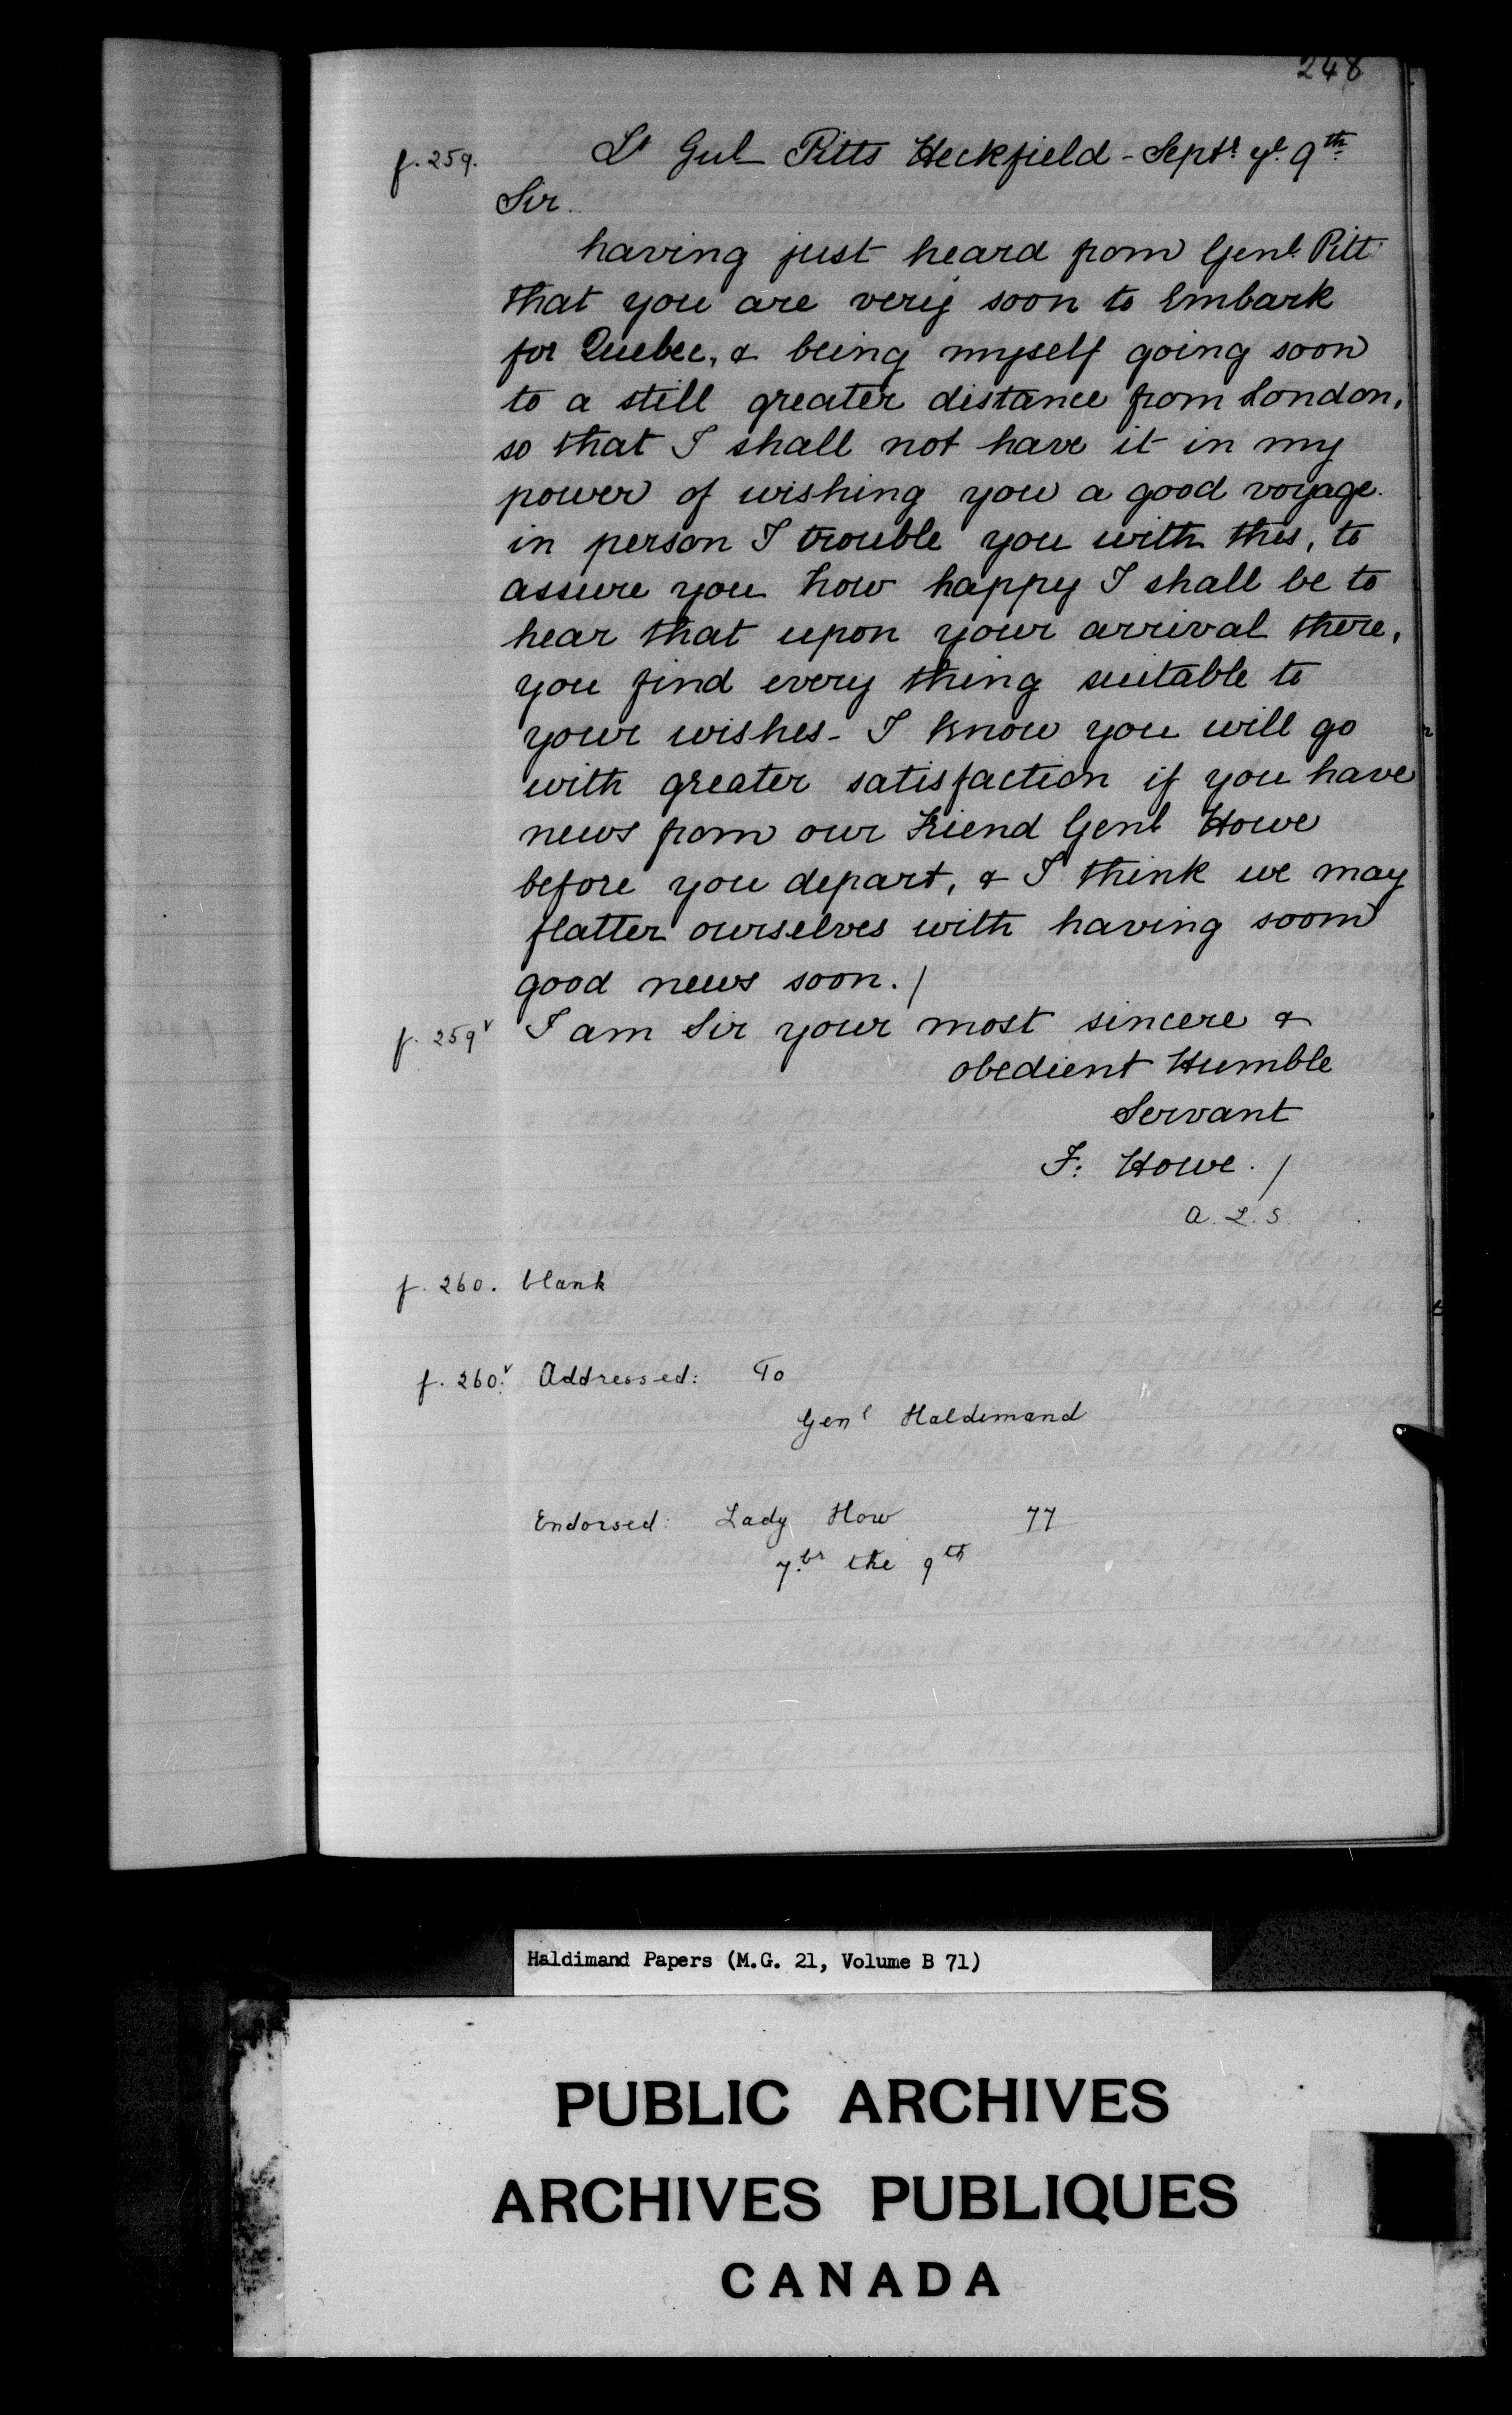 248
f. 259. Lt Gul Pitts Heckfield - Septr ye 9th
Sir.
having just heard from Genl Pitt
that you are very soon to Embark
for Quebec, & being myself going soon
to a still greater distance from London,
so that I shall not have it in my
power of wishing you a good voyage
in person I trouble you with this, to
assure you how happy I shall be to
hear that upon your arrival there,
you find every thing suitable to
your wishes - I know you will go
with greater satisfaction if you have
news from our Friend Genl Howe
before you depart, & I think we may
flatter ourselves with having soom
good news soon. /
f. 259v I am Sir your most sincere &
obedient Humble
Servant
F: Howe. /
A. L. S.
f. 260. blank
f. 260v. Addressed: To
Genl Haldimand
Endorsed: Lady How 77
7.br the 9th
Haldimand Papers (M.G. 21, Volume B 71)
PUBLIC ARCHIVES
ARCHIVES PUBLIQUES
CANADA